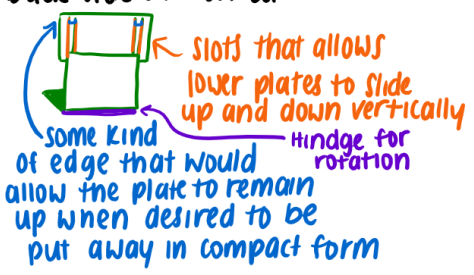 slots that allows
lower plates to slide
up and down vertically
Hindge for
rotation
some kind
of edge that would
allow the plate to remain
up when desired to be
put away in compact form